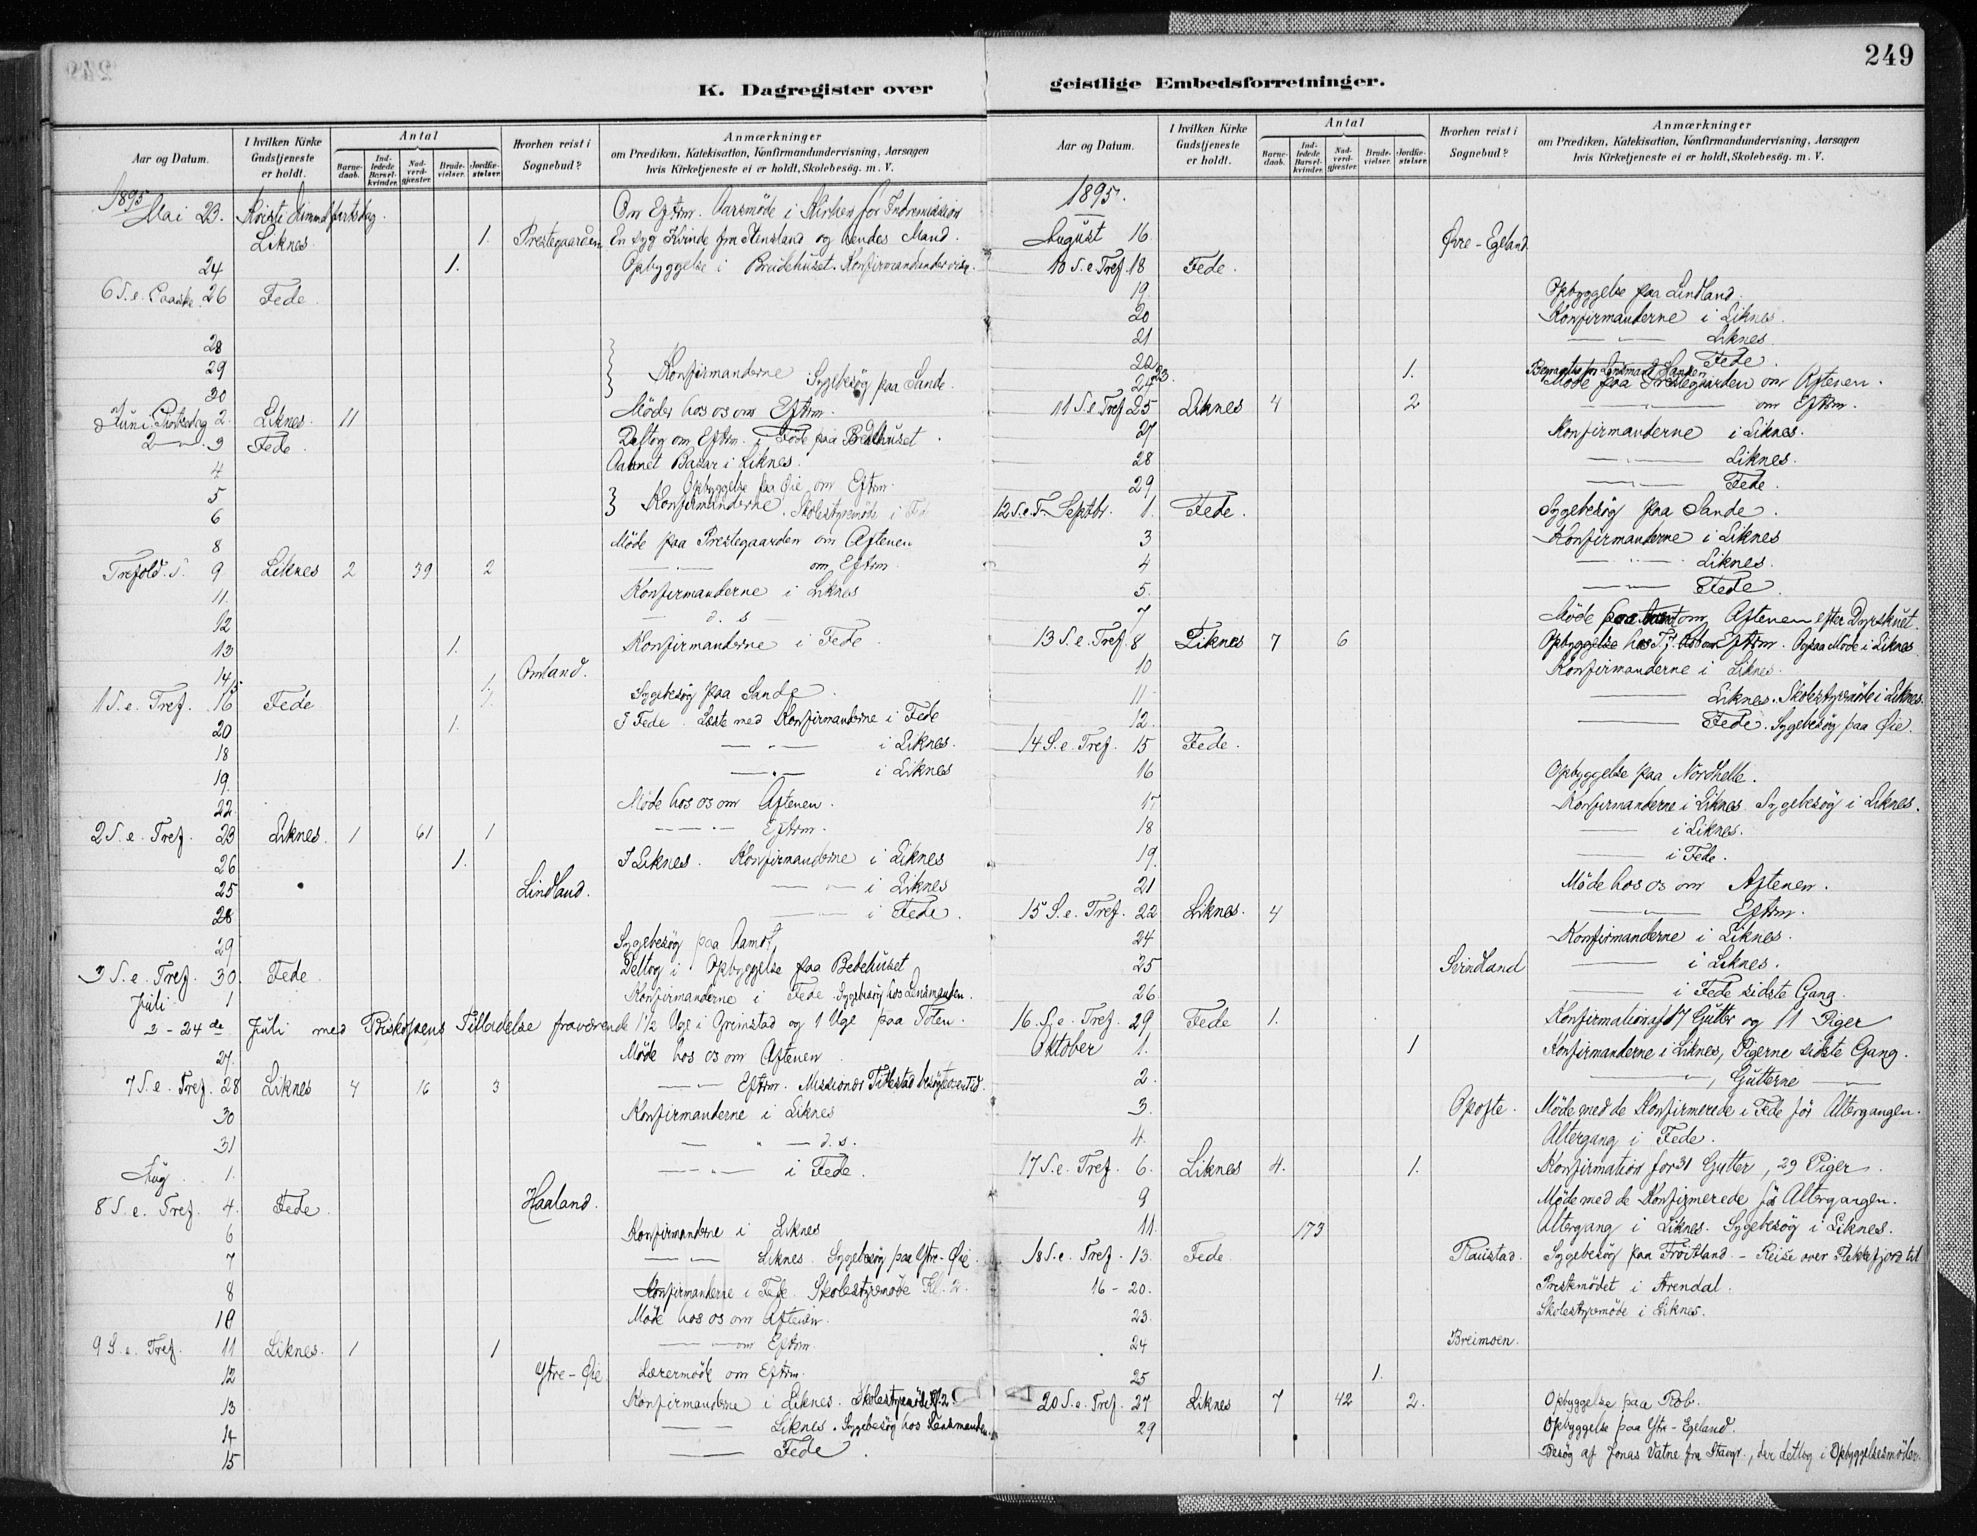 249
K. Dagregister over geistlige Embedsforretninger.
Aar og Datum.
I hvilken Kirke Gudstjeneste er holdt.
Antal
Barne-daab.
Ind-ledede Barsel-kvinder.
Nad-verd-gjæster.
Brude-vielser.
Jordfæ-stelser.
Hvorhen reist i Sognebud?
Anmærkninger
om Prædiken, Katekisation, Konfirmandundervisning, Aarsagen
hvis Kirketjeneste ei er holdt, Skolebesøg. m. V.
1895
Mai 23. Kristi Himmelfartsdag. Om Eftm. Aarsmöde i Kirken for Indremission
Liknes. 1. Prestegaarden En syg Kvinde fra Stensland og hendes Mand.
24 1. Opbyggelse i Brudehuset. Konfirmandundervisn.
6 S. e. Paaske 26 Fede.
28
29 Konfirmanderne Sygebesög paa Sande.
30
Juni Pintsedag 2. Liknes. 11 Möder hos os om Eftm.
2 3 Fede. Deltog om Eftm. i Fede paa Bedehuset.
4 Aabnet Bazar i Liknes.
5 Opbyggelse paa Öie om Eftm.
6 Konfirmanderne. Skolestyremöde i Fede
8 Möde paa Prestegaarden om Aftenen
Trefold. S. 9 Liknes 2 39 2 — om Eftm.
11. Konfirmanderne i Liknes
12 — d. s —
13 1. Konfirmanderne i Fede
14 Omland.
1 S. e. Tref. 16 Fede 1 Sygebesög paa Sande
20 1. I Fede Læste med Konfirmanderne i Fede
18 — " — i Liknes.
19. — " — i Liknes
22. Möde hos os om Aftenen.
2 S. e. Tref. 23 Liknes. 1 61 1 — " — Eftm.
26 1. I Liknes. Konfirmanderne i Liknes
25 Lindland. — " — i Liknes
28 — i Fede.
29 Sygebesög paa Aamot
3 S. e. Tref. 30. Fede. Deltog i Opbyggelse paa Bedehuset
Juli 1 Konfirmanderne i Fede. Sygebesög hos Lensmanden.
2 - 24de Juli med Biskopens Tilladelse fraværende 1½ Uge i Grimstad og 1 Uge paa Toten.
27. Möde hos os om Aftenen
7 S. e. Tref. 28 Liknes 4 16 3 — — Eftm. Missionær Tillestad besögte
30 Konfirmanderne i Liknes
31 — " — d. s.
Aug. 1. — " — i Fede.
8 S. e. Tref. 4. Fede. Haaland.
6 Konfirmanderne i Liknes
7 — — Liknes. Sygebesög paa Ytre-Öie.
8 Konfirmanderne i Fede. Skolestyremöde Kl. 2.
10 Möde hos os om Aftenen.
9 S. e. Tref. 11 Liknes. 1 1 — om Eftm.
12 Ytre-Öie Lærermöde om Eftm.
13 Konfirmanderne i Liknes. Skolestyremöde Kl. 2
14 — — Liknes. Sygebesög hos Lensmanden.
15 — Fede.
Aar og Datum.
I hvilken Kirke Gudstjeneste er holdt.
Antal
Barne-daab.
Ind-ledede Barsel-kvinder.
Nad-verd-gjæster.
Brude-vielser.
Jordfæ-stelser.
Hvorhen reist i Sognebud?
Anmærkninger
om Prædiken, Katekisation, Konfirmandundervisning, Aarsagen
hvis Kirketjeneste ei er holdt, Skolebesøg. m. V.
1895.
August 16 Övre-Egeland
10 S. e. Tref. 18 Fede.
19. Opbyggelse paa Lindland.
20 Konfirmanderne i Liknes.
21 — " — Liknes.
22 Fede.
23. 1. Begravelse for Lensmand Hansen
24 Möde paa Prestegaarden om Aftenen.
11 S. e. Tref 25 Liknes 4 2 — om Eftm.
27 Konfirmanderne i Liknes.
28 — " — Liknes.
29 — " — Fede.
12 S. e. T. Septbr. 1. Fede. Sygebesög paa Sande.
3 Konfirmanderne i Liknes
4 — " — Liknes.
5. — " — Fede.
7 Möde om Aftenen efter Dyrskuet
13 S. e. Tref. 8 Liknes 7 6 Opbyggelse Eftm. Ogsaa Möde i Liknes
10 Konfirmanderne i Liknes.
11. — Liknes. Skolestyremöde i Liknes.
12. — Fede. Sygebesög paa Öie.
14 S. e. Tref. 15 Fede.
16 Opbyggelse paa Nordhelle.
17 Konfirmanderne i Liknes. Sygebesög i Liknes.
18 — i Liknes.
19. — i Fede.
21 Möde hos os om Aftenen.
15 S. e. Tref. 22 Liknes. 4 — " — Eftm.
24 Konfirmanderne i Liknes.
25 Svindland — i Liknes.
26 — i Fede sidste Gang.
16. S. e. Tref. 29 Fede 1. Konfirmation af 17 Gutter og 11 Piger
Oktober 1. 1 Konfirmanderne i Liknes, Pigerne sidste Gang.
2. — " —, Gutterne —
3. Opofte. Möde med de Konfirmerede i Fede för Altergangen.
4. Altergang i Fede.
17 S. e. Tref. 6. Liknes 4. 1. Konfirmation for 31 Gutter, 29 Piger.
9 Möde med de Konfirmerede för Altergangen.
11. 173 Altergang i Liknes. Sygebesög i Liknes.
18 S. e. Tref. 13. Fede Raustad. Sygebesög paa Fröitland - Reise over Flekkefjord til
16 - 20. Prestemödet i Arendal.
23. Skolestyremöde i Liknes.
24 Breimoen.
25 1.
20 S. e. Tref. 27 Liknes 7 42 2. Opbyggelse paa Rob.
29 Opbyggelse paa Ytr-Egeland.
Besög af Jonas Vatne fra Stavgr., der deltog i Opbyggelsesmöder.